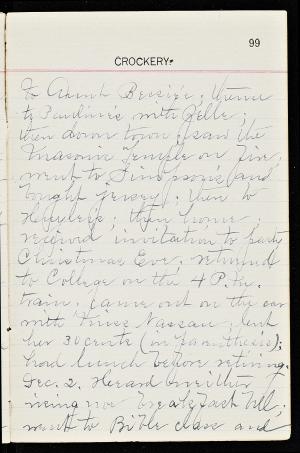 99
CROCKERY.
To Aunt Bessie's; thence
to Perdine's with Zelle;
then down town; saw the
Masonic Temple on fire;
went to Simpsons and
bought jersey; then to
Huyler's; then home;
received invitation to party
Christmas Eve. returned
to College on the 4 P.M.
train. Came out on the car
with Miss Nassau; lent
her 30 cents (in parenthesis);
had lunch before retiring.
Dec. 2. Heard neither
rising nor breakfast bell;
went to Bible class and